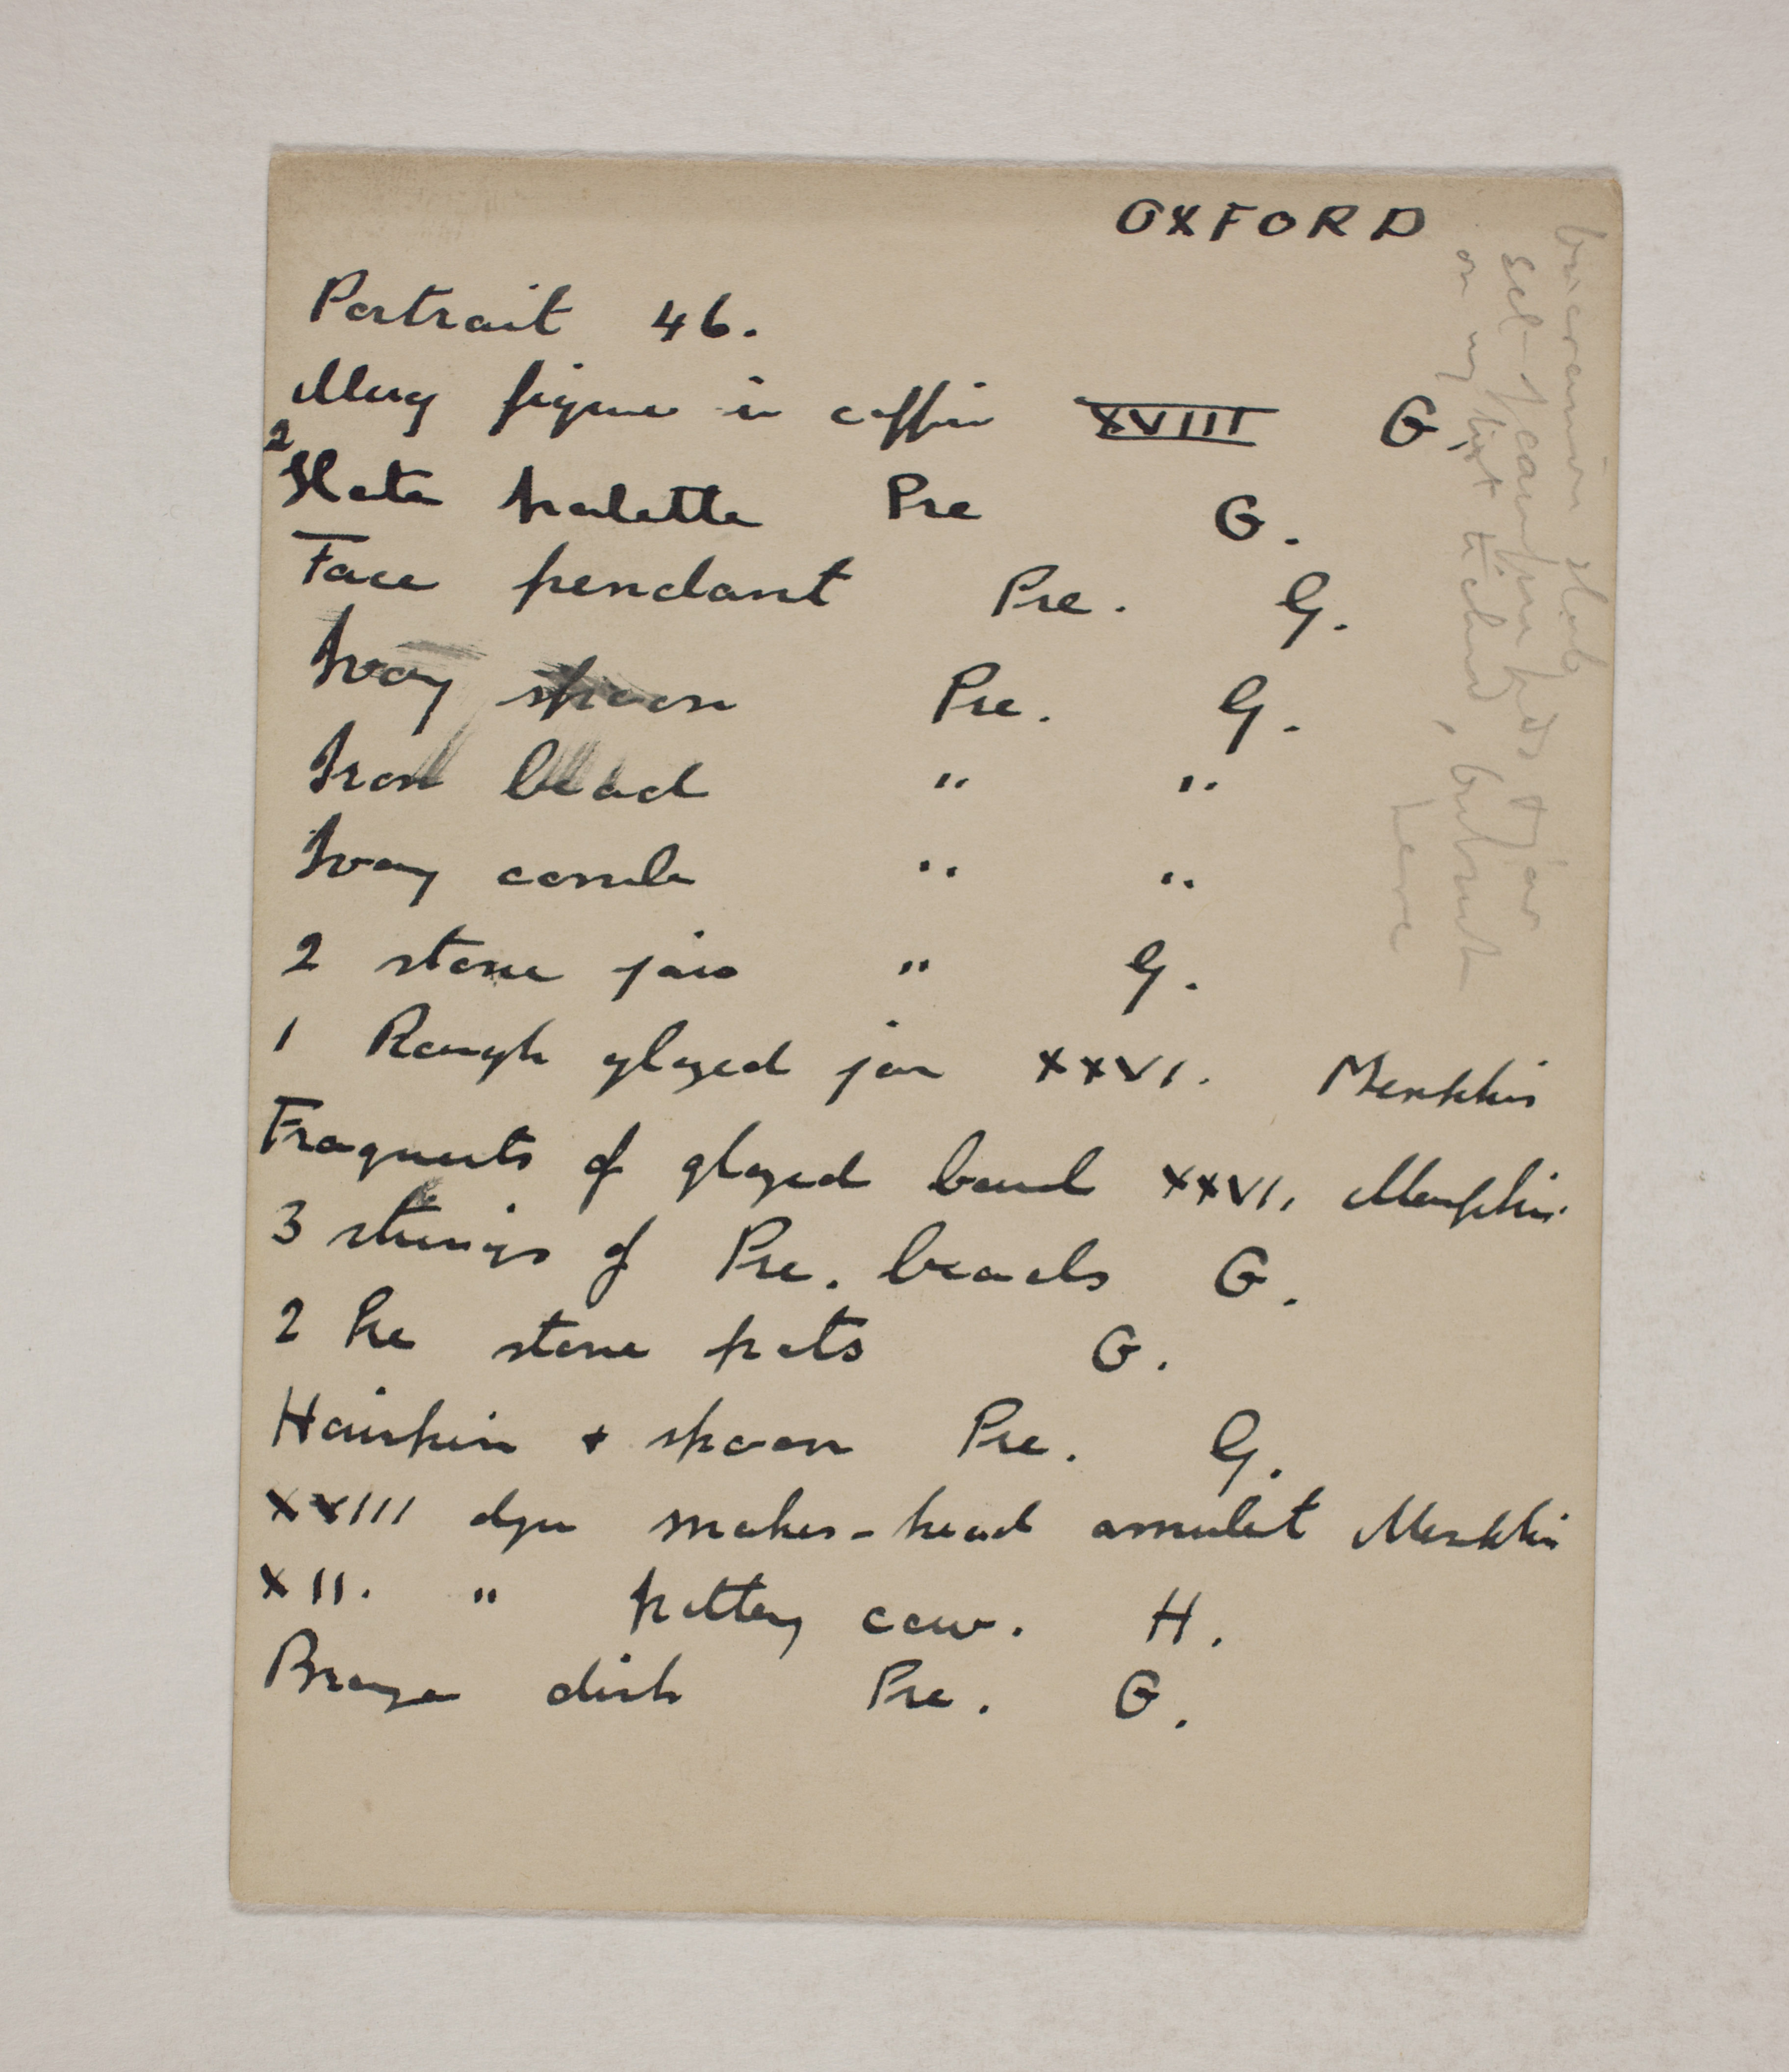 OXFORD
Portrait 46.
figure in coffin XVIII G.
2 Slate palette Pre G.
Face pendant Pre. G.
Ivory spoon Pre. G.
Iron bead " "
Ivory comb " "
2 stone jars " G.
1 Rough glazed jar XXVI. Memphis
Fragments of glazed bowl XXVI, Memphis.
3 strings of Pre. beads G.
2 Pre stone pots G.
Hairpin + spoon Pre. G.
XXIII dyn snakes-head amulet Memphis
XII. " pottery cow. H.
Bronze dish Pre. G.
slab
set jar
on my list ticked, but not
here